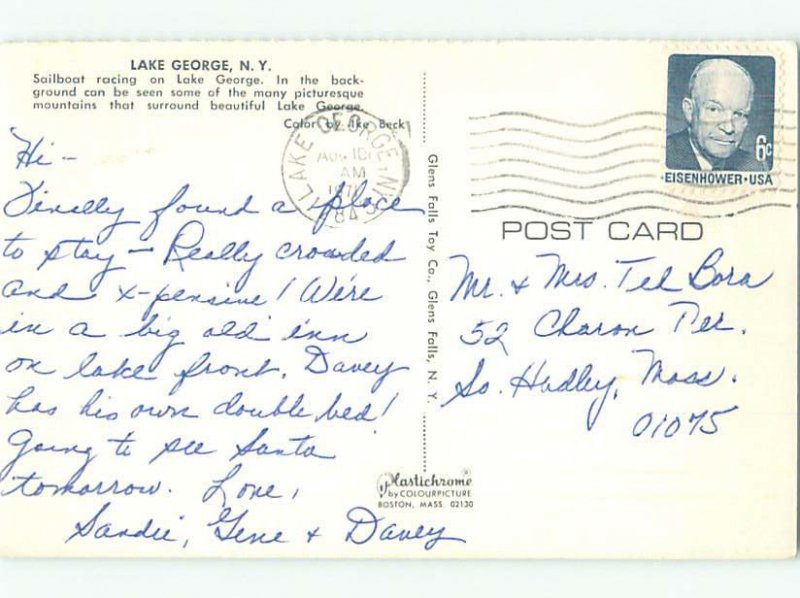 LAKE GEORGE, N. Y.
Sailboat racing on Lake George. In the back-
ground can be seen some of the many picturesque
mountains that surround beautiful Lake George.
Color by Ike Beck
Hi –
Finally found a place
to stay – Really crowded
and x-pensive! We're
in a big old inn
on lake front. Davey
has his own double bed!
Going to see Santa
tomorrow. Love,
Sandie, Gene + Davey
LAKE GEORGE, N.Y.
AUG 10
AM
Glens Falls Toy Co., Glens Falls, N. Y.
Plastichrome®
by COLOURPICTURE
BOSTON, MASS. 02130
6c
EISENHOWER·USA
POST CARD
Mr. + Mrs. Ted Bora
52 Charon Ter.
So. Hadley, Mass.
01075